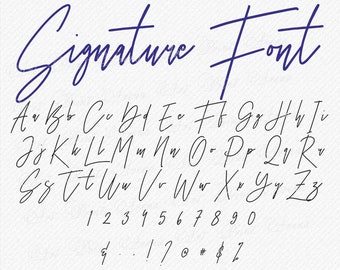 Signature Font
Aa Bb Cc Dd Ee Ff Gg Hh Ii
Jj Kk Ll Mm Nn Oo Pp Qq Rr
Ss Tt Uu Vv Ww Xx Yy Zz
1 2 3 4 5 6 7 8 9 0
& , . ! ? @ # $ %